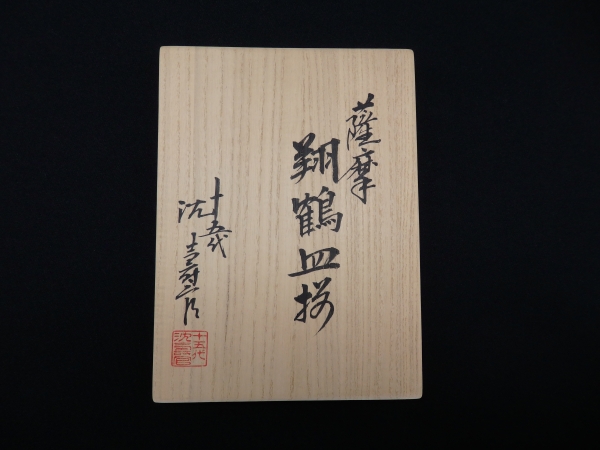 薩摩
翔鶴皿揃
十五代
沈壽官
十五代
沈壽官